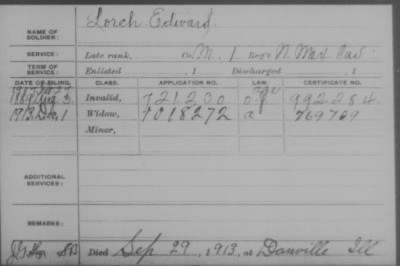 Lorch Edward
NAME OF SOLDIER:
SERVICE: Late rank, Co. M, 1 Reg't N. Mex. Cav.
TERM OF SERVICE: Enlisted , 1 Discharged , 1
DATE OF FILING. CLASS. APPLICATION NO. LAW. CERTIFICATE NO.
1889 Aug 3 Invalid, 721200 992284
1913 Dec 1 Widow, 1018272 a 769709
Minor,
ADDITIONAL SERVICES:
REMARKS:
Died Sep 29, 1913, at Danville Ill